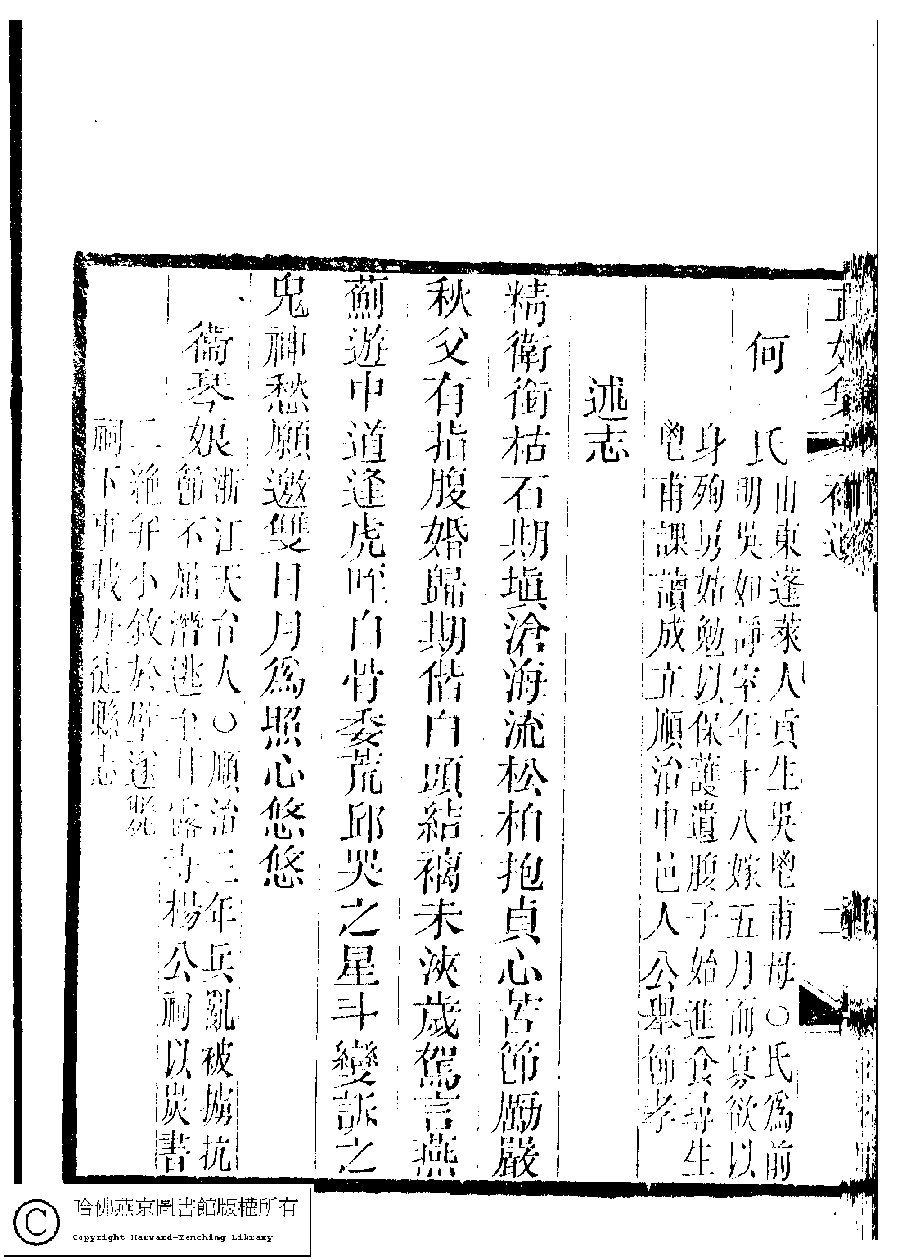 何氏
山東蓬萊人貢生吳鬯甫母○氏為前
明吳如諍室年十八嫁五月而寡欲以
身殉男姑勉以保護遺腹子始進食尋生
鬯甫課讀成立順治中邑人公舉節孝
述志
精衛銜枯石期塡滄海流松柏抱貞心苦節勵嚴
秋父有指腹婚歸期偕白頭結褵未浹歲駕言燕
薊遊中道逢虎咥白骨委荒邱哭之星斗變訴之
鬼神愁願邀雙日月為照心悠悠
衛琴娘
浙江天台人○順治二年兵亂被擄抗
節不屈潛逃至甘露寺楊公祠以炭書
二絶并小敘於壁遂斃
祠下事載丹徒縣志
二
哈佛燕京圖書館版權所有
Copyright Harvard-Yenching Library